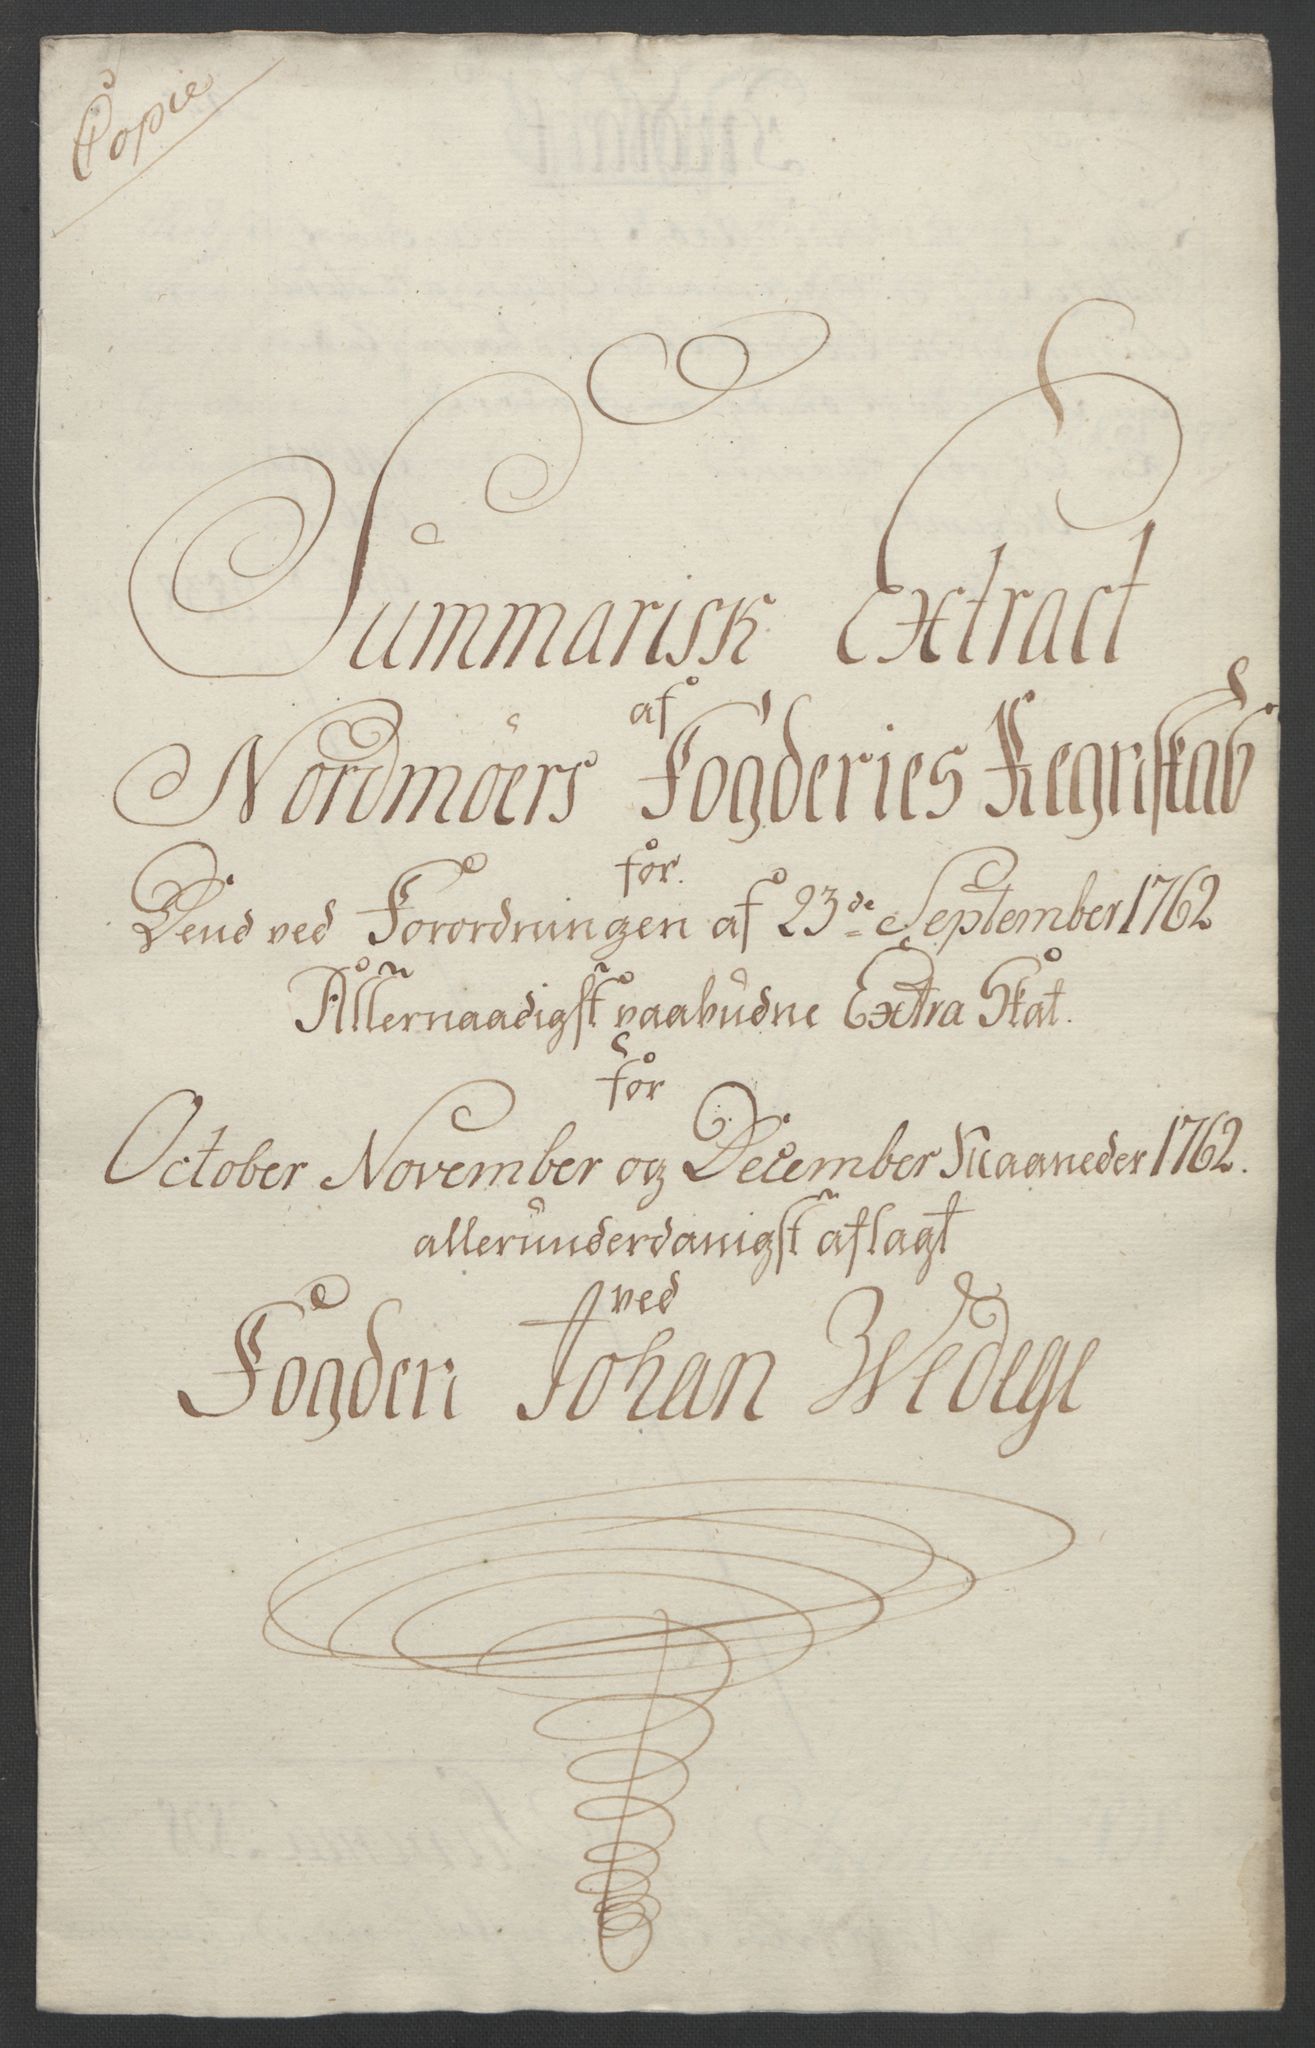 Copie
Summarisk Extract
af
Nordmöers Fogderies Regnskab
for
Dend ved Forordningen af 23de September 1762
Allernaadigst paabudne Extra Skat.
for
October November og December Maaneder 1762.
allerunderdanigst aflagt
ved
Fogden Johan Wedege